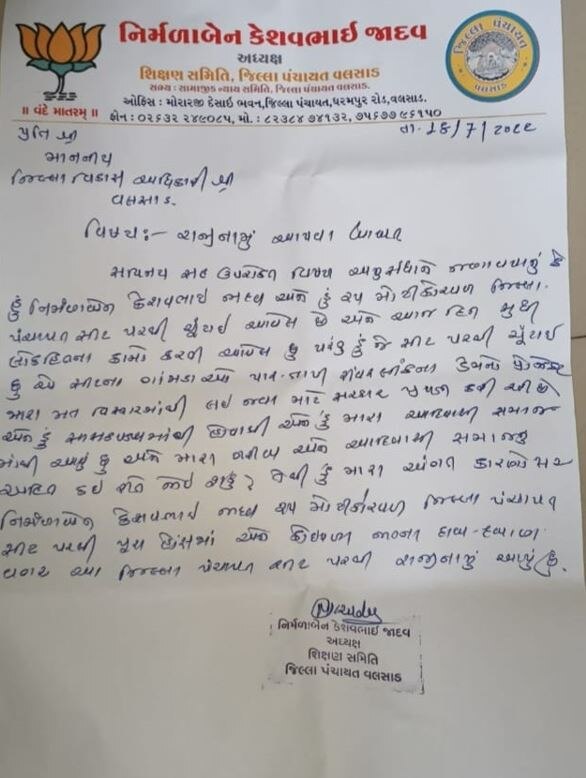 નિર્મળાબેન કેશવભાઈ જાદવ
અધ્યક્ષ
શિક્ષણ સમિતિ, જિલ્લા પંચાયત વલસાડ
સભ્ય : સામાજીક ન્યાય સમિતિ, જિલ્લા પંચાયત વલસાડ.
ઓફિસ : મોરારજી દેસાઈ ભવન,જિલ્લા પંચાયત,ધરમપુર રોડ,વલસાડ.
॥ વંદે માતરમ્ ॥
ફોન : ૦૨૬૩૨ ૨૪૯૦૮૫, મો. : ૮૨૩૮૪ ૭૪૧૩૨, ૭૫૬૭૭ ૯૬૧૫૦
જિલ્લા પંચાયત
વલસાડ
પ્રતિ શ્રી
માનનીય
જિલ્લા વિકાસ અધિકારી શ્રી
વલસાડ.
વિષય :- રાજીનામું આપવા બાબત
સવિનય સહ ઉપરોક્ત વિષય અનુસંધાને જણાવવાનું કે
હું નિર્મળાબેન કેશવભાઈ જાદવ અને હું ૨૫ મોટીકોરવળ જિલ્લા
પંચાયત સીટ પરથી ચૂંટાઈ આવેલ છે અને આજ દિન સુધી
લોકહિતના કામો કરતી આવેલ છું પરંતુ હું જે સીટ પરથી ચૂંટાઈ
છું એ સીટના ગામડાઓ પાર-તાપી રીવર લીંકના ડેમનો પ્રોજેક્ટ
મારા મત વિસ્તારમાંથી લઈ જવા માટે સરકાર
અને હું હોવાથી અને હું મારા આદિવાસી સમાજ
માંથી આવું છું અને મારા અને આદિવાસી સમાજનું
અહિત કઈ રીતે જોઈ શકું? તેથી હું મારા અંગત કારણોસર
નિર્મળાબેન કેશવભાઈ જાદવ ૨૫ મોટીકોરવળ જિલ્લા પંચાયત
સીટ પરથી પૂરા હોંસમાં અને કોઈપણ જાતના દાબ-દબાણ
વગર આ જિલ્લા પંચાયત સીટ પરથી રાજીનામું આપું છું.
નિર્મળાબેન કેશવભાઈ જાદવ
અધ્યક્ષ
શિક્ષણ સમિતિ
જિલ્લા પંચાયત વલસાડ